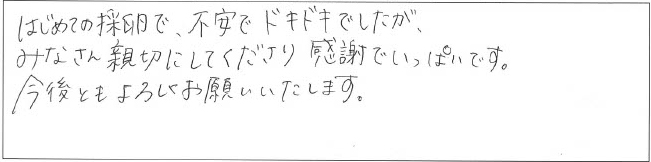 はじめての採卵で、不安でドキドキでしたが、
みなさん親切にしてくださり感謝でいっぱいです。
今後ともよろしくお願いいたします。